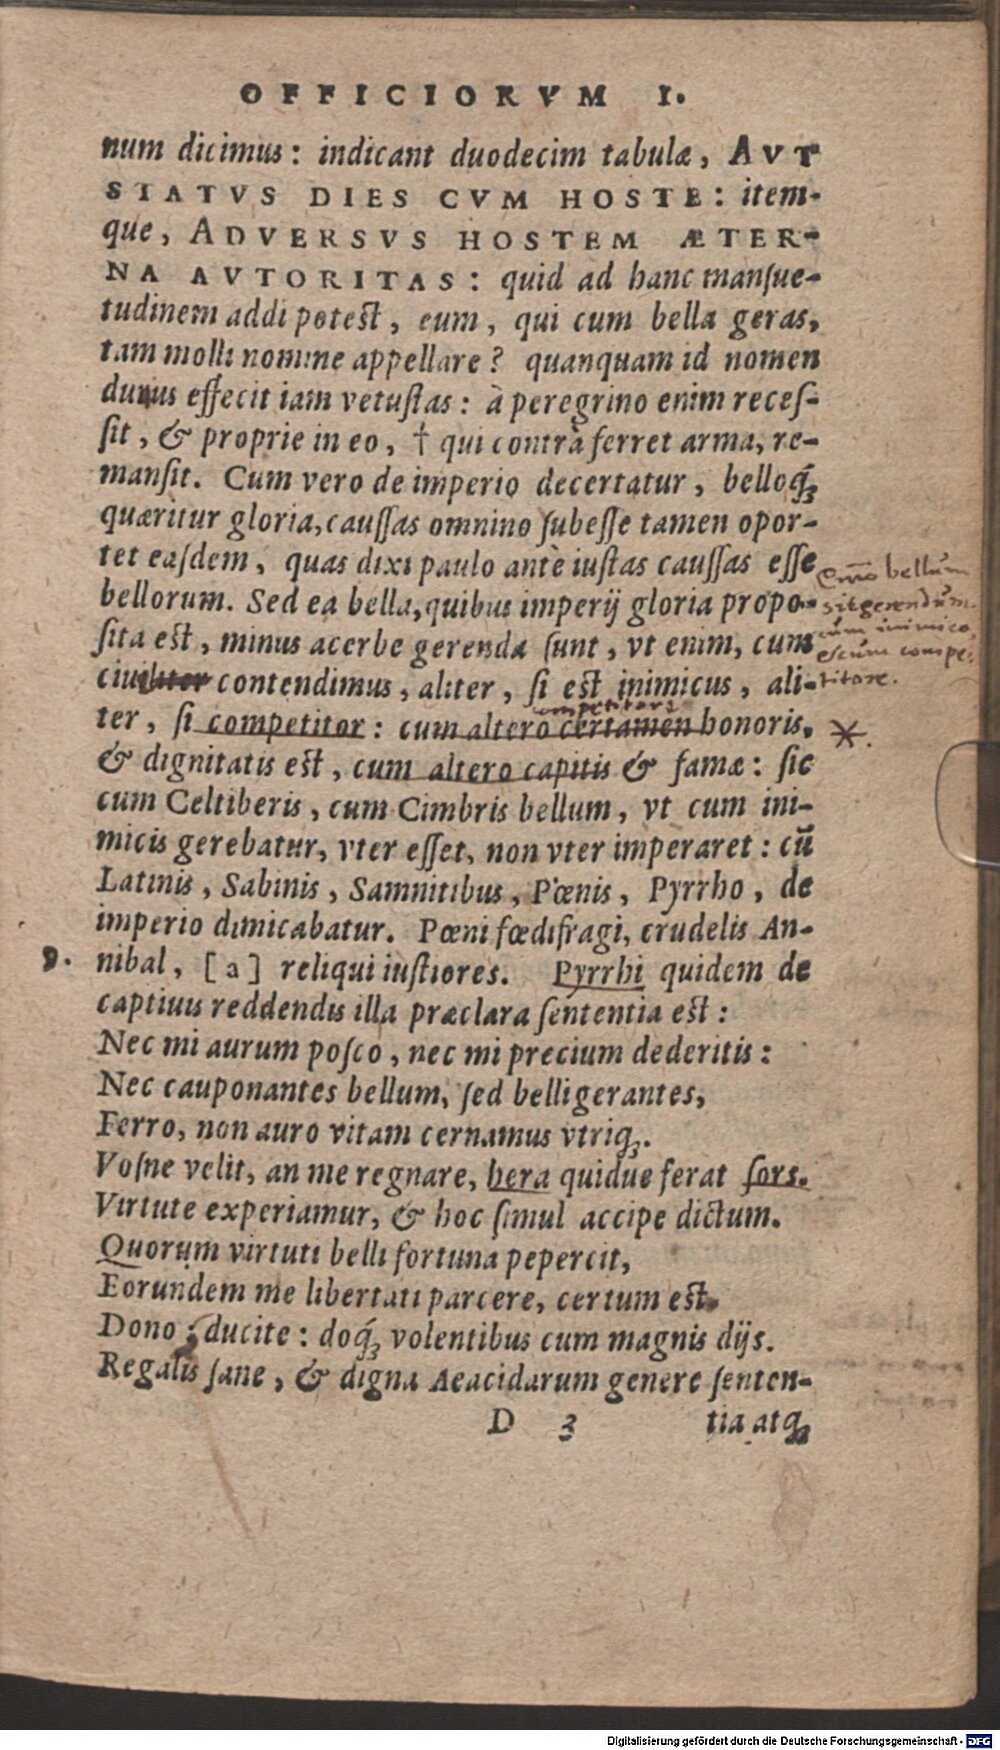 OFFICIORVM I.
num dicimus: indicant duodecim tabulæ, AVT
STATVS DIES CVM HOSTE: item-
que, ADVERSVS HOSTEM ÆTER-
NA AVTORITAS: quid ad hanc manſue-
tudinem addi potest, eum, qui cum bella geras,
tam molli nomine appellare? quanquam id nomen
durius effecit iam vetuſtas: à peregrino enim receſ-
ſit, & proprie in eo, † qui contrà ferret arma, re-
manſit. Cum vero de imperio decertatur, belloq́;
quæritur gloria, cauſſas omnino ſubeſſe tamen opor-
tet eaſdem, quas dixi paulo antè iuſtas cauſſas eſſe
bellorum. Sed ea bella, quibus imperij gloria propo-
ſita est, minus acerbe gerenda ſunt, vt enim, cum
ciuiliter contendimus, aliter, ſi est inimicus, ali-
ter, ſi competitor: cum altero certamen honoris,
& dignitatis est, cum altero capitis & famæ: ſic
cum Celtiberis, cum Cimbris bellum, vt cum ini-
micis gerebatur, vter eſſet, non vter imperaret: cū
Latinis, Sabinis, Samnitibus, Pœnis, Pyrrho, de
imperio dimicabatur. Pœni fœdifragi, crudelis An-
nibal, [a] reliqui iuſtiores. Pyrrhi quidem de
captiuis reddendis illa præclara ſententia est:
Nec mi aurum poſco, nec mi precium dederitis:
Nec cauponantes bellum, ſed belligerantes,
Ferro, non auro vitam cernamus vtriq;.
Voſne velit, an me regnare, hera quidue ferat ſors.
Virtute experiamur, & hoc ſimul accipe dictum.
Quorum virtuti belli fortuna pepercit,
Eorundem me libertati parcere, certum est.
Dono ducite: doq́; volentibus cum magnis dijs.
Regalis ſane, & digna Aeacidarum genere ſenten-
D 3 tia atq;
9.
bellum
sit gerendum
cum inimico,
competitore.
competitore